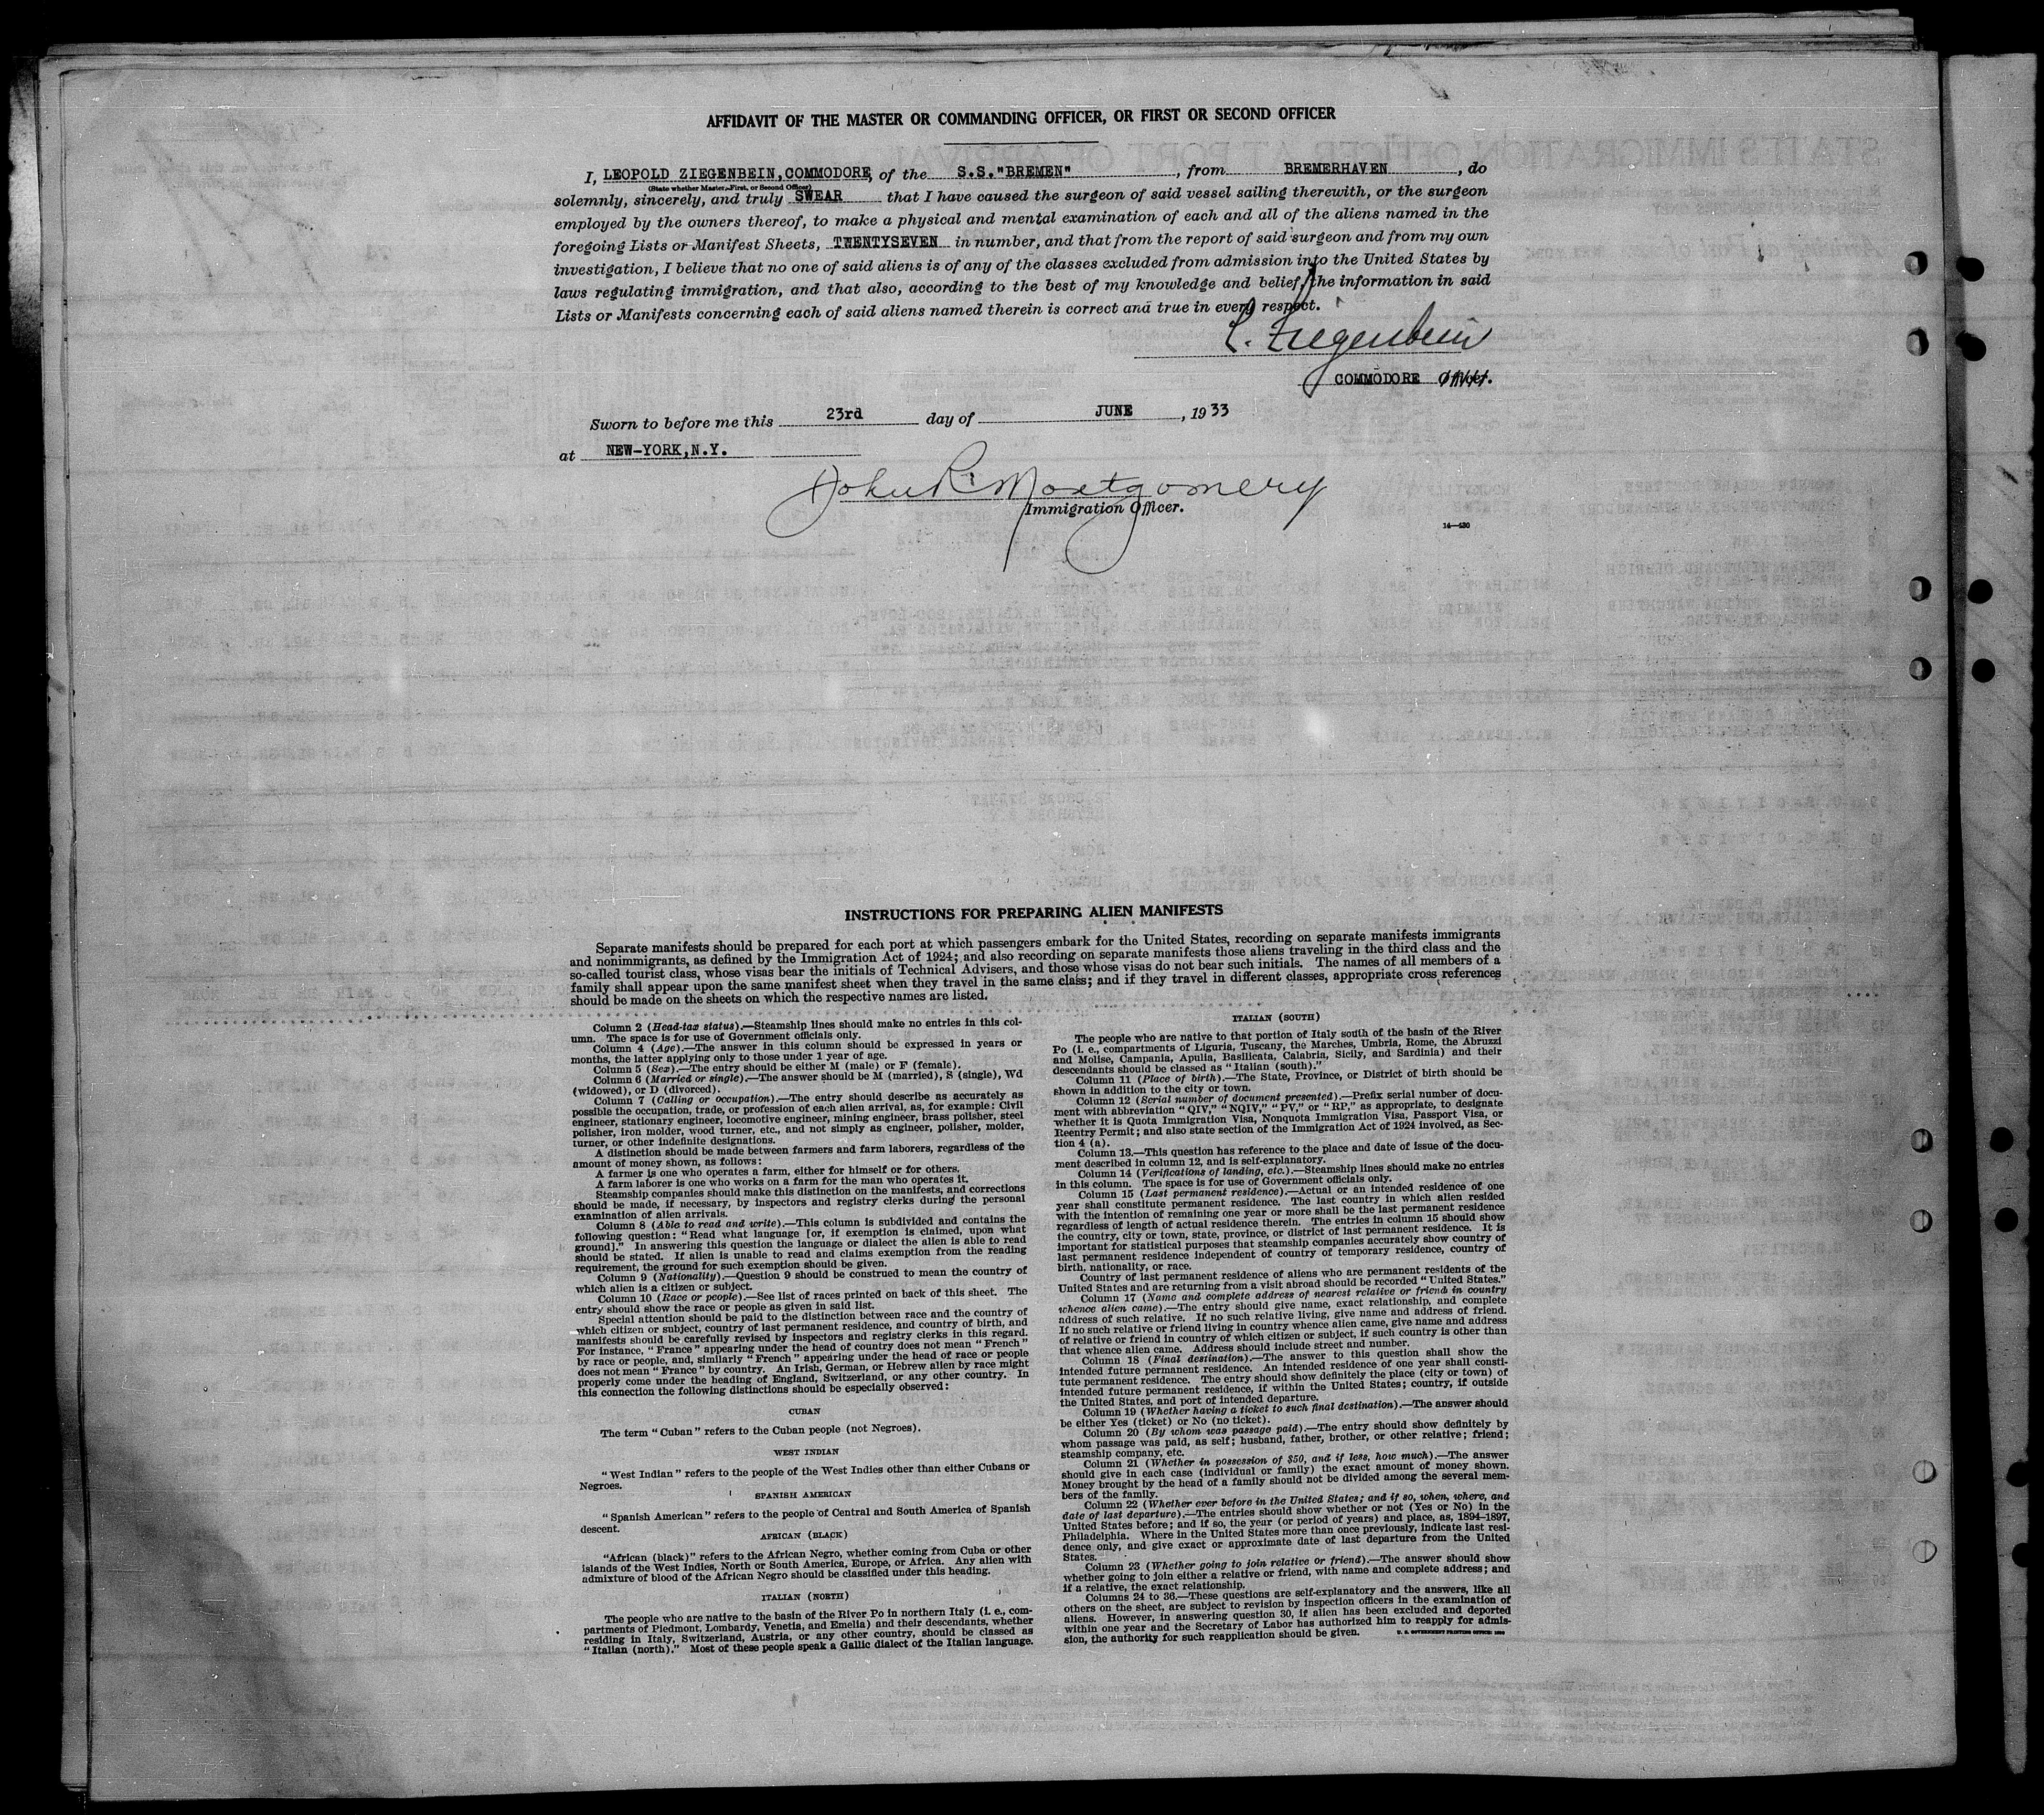 AFFIDAVIT OF THE MASTER OR COMMANDING OFFICER, OR FIRST OR SECOND OFFICER
I, LEOPOLD ZIEGENBEIN, COMMODORE, of the S.S."BREMEN", from BREMERHAVEN, do
(State whether Master, First, or Second Officer)
solemnly, sincerely, and truly SWEAR that I have caused the surgeon of said vessel sailing therewith, or the surgeon
employed by the owners thereof, to make a physical and mental examination of each and all of the aliens named in the
foregoing Lists or Manifest Sheets, TWENTYSEVEN in number, and that from the report of said surgeon and from my own
investigation, I believe that no one of said aliens is of any of the classes excluded from admission into the United States by
laws regulating immigration, and that also, according to the best of my knowledge and belief, the information in said
Lists or Manifests concerning each of said aliens named therein is correct and true in every respect.
L. Ziegenbein
COMMODORE Officer.
Sworn to before me this 23rd day of JUNE, 1933
at NEW-YORK,N.Y.
John R. Montgomery
Immigration Officer.
14—430
INSTRUCTIONS FOR PREPARING ALIEN MANIFESTS
Separate manifests should be prepared for each port at which passengers embark for the United States, recording on separate manifests immigrants
and nonimmigrants, as defined by the Immigration Act of 1924; and also recording on separate manifests those aliens traveling in the third class and the
so-called tourist class, whose visas bear the initials of Technical Advisers, and those whose visas do not bear such initials. The names of all members of a
family shall appear upon the same manifest sheet when they travel in the same class; and if they travel in different classes, appropriate cross references
should be made on the sheets on which the respective names are listed.
Column 2 (Head-tax status).—Steamship lines should make no entries in this col-
umn. The space is for use of Government officials only.
Column 4 (Age).—The answer in this column should be expressed in years or
months, the latter applying only to those under 1 year of age.
Column 5 (Sex).—The entry should be either M (male) or F (female).
Column 6 (Married or single).—The answer should be M (married), S (single), Wd
(widowed), or D (divorced).
Column 7 (Calling or occupation).—The entry should describe as accurately as
possible the occupation, trade, or profession of each alien arrival, as, for example: Civil
engineer, stationary engineer, locomotive engineer, mining engineer, brass polisher, steel
polisher, iron molder, wood turner, etc., and not simply as engineer, polisher, molder,
turner, or other indefinite designations.
A distinction should be made between farmers and farm laborers, regardless of the
amount of money shown, as follows:
A farmer is one who operates a farm, either for himself or for others.
A farm laborer is one who works on a farm for the man who operates it.
Steamship companies should make this distinction on the manifests, and corrections
should be made, if necessary, by inspectors and registry clerks during the personal
examination of alien arrivals.
Column 8 (Able to read and write).—This column is subdivided and contains the
following question: "Read what language [or, if exemption is claimed, upon what
ground]." In answering this question the language or dialect the alien is able to read
should be stated. If alien is unable to read and claims exemption from the reading
requirement, the ground for such exemption should be given.
Column 9 (Nationality).—Question 9 should be construed to mean the country of
which alien is a citizen or subject.
Column 10 (Race or people).—See list of races printed on back of this sheet. The
entry should show the race or people as given in said list.
Special attention should be paid to the distinction between race and the country of
which citizen or subject, country of last permanent residence, and country of birth, and
manifests should be carefully revised by inspectors and registry clerks in this regard.
For instance, "France" appearing under the head of country does not mean "French"
by race or people, and, similarly "French" appearing under the head of race or people
does not mean "France" by country. An Irish, German, or Hebrew alien by race might
properly come under the heading of England, Switzerland, or any other country. In
this connection the following distinctions should be especially observed:
CUBAN
The term "Cuban" refers to the Cuban people (not Negroes).
WEST INDIAN
"West Indian" refers to the people of the West Indies other than either Cubans or
Negroes.
SPANISH AMERICAN
"Spanish American" refers to the people of Central and South America of Spanish
descent.
AFRICAN (BLACK)
"African (black)" refers to the African Negro, whether coming from Cuba or other
islands of the West Indies, North or South America, Europe, or Africa. Any alien with
admixture of blood of the African Negro should be classified under this heading.
ITALIAN (NORTH)
The people who are native to the basin of the River Po in northern Italy (i. e., com-
partments of Piedmont, Lombardy, Venetia, and Emelia) and their descendants, whether
residing in Italy, Switzerland, Austria, or any other country, should be classed as
"Italian (north)." Most of these people speak a Gallic dialect of the Italian language.
ITALIAN (SOUTH)
The people who are native to that portion of Italy south of the basin of the River
Po (i. e., compartments of Liguria, Tuscany, the Marches, Umbria, Rome, the Abruzzi
and Molise, Campania, Apulia, Basilicata, Calabria, Sicily, and Sardinia) and their
descendants should be classed as "Italian (south)."
Column 11 (Place of birth).—The State, Province, or District of birth should be
shown in addition to the city or town.
Column 12 (Serial number of document presented).—Prefix serial number of docu-
ment with abbreviation "QIV," "NQIV," "PV," or "RP," as appropriate, to designate
whether it is Quota Immigration Visa, Nonquota Immigration Visa, Passport Visa, or
Reentry Permit; and also state section of the Immigration Act of 1924 involved, as Sec-
tion 4 (a).
Column 13.—This question has reference to the place and date of issue of the docu-
ment described in column 12, and is self-explanatory.
Column 14 (Verifications of landing, etc.).—Steamship lines should make no entries
in this column. The space is for use of Government officials only.
Column 15 (Last permanent residence).—Actual or an intended residence of one
year shall constitute permanent residence. The last country in which alien resided
with the intention of remaining one year or more shall be the last permanent residence
regardless of length of actual residence therein. The entries in column 15 should show
the country, city or town, state, province, or district of last permanent residence. It is
important for statistical purposes that steamship companies accurately show country of
last permanent residence independent of country of temporary residence, country of
birth, nationality, or race.
Country of last permanent residence of aliens who are permanent residents of the
United States and are returning from a visit abroad should be recorded "United States."
Column 17 (Name and complete address of nearest relative or friend in country
whence alien came).—The entry should give name, exact relationship, and complete
address of such relative. If no such relative living, give name and address of friend.
If no such relative or friend living in country whence alien came, give name and address
of relative or friend in country of which citizen or subject, if such country is other than
that whence alien came. Address should include street and number.
Column 18 (Final destination).—The answer to this question shall show the
intended future permanent residence. An intended residence of one year shall consti-
tute permanent residence. The entry should show definitely the place (city or town) of
intended future permanent residence, if within the United States; country, if outside
the United States, and port of intended departure.
Column 19 (Whether having a ticket to such final destination).—The answer should
be either Yes (ticket) or No (no ticket).
Column 20 (By whom was passage paid).—The entry should show definitely by
whom passage was paid, as self; husband, father, brother, or other relative; friend;
steamship company, etc.
Column 21 (Whether in possession of $50, and if less, how much).—The answer
should give in each case (individual or family) the exact amount of money shown.
Money brought by the head of a family should not be divided among the several mem-
bers of the family.
Column 22 (Whether ever before in the United States; and if so, when, where, and
date of last departure).—The entries should show whether or not (Yes or No) in the
United States before; and if so, the year (or period of years) and place, as, 1894–1897,
Philadelphia. Where in the United States more than once previously, indicate last resi-
dence only, and give exact or approximate date of last departure from the United
States.
Column 23 (Whether going to join relative or friend).—The answer should show
whether going to join either a relative or friend, with name and complete address; and
if a relative, the exact relationship.
Columns 24 to 36.—These questions are self-explanatory and the answers, like all
others on the sheet, are subject to revision by inspection officers in the examination of
aliens. However, in answering question 30, if alien has been excluded and deported
within one year and the Secretary of Labor has authorized him to reapply for admis-
sion, the authority for such reapplication should be given.
U. S. GOVERNMENT PRINTING OFFICE: